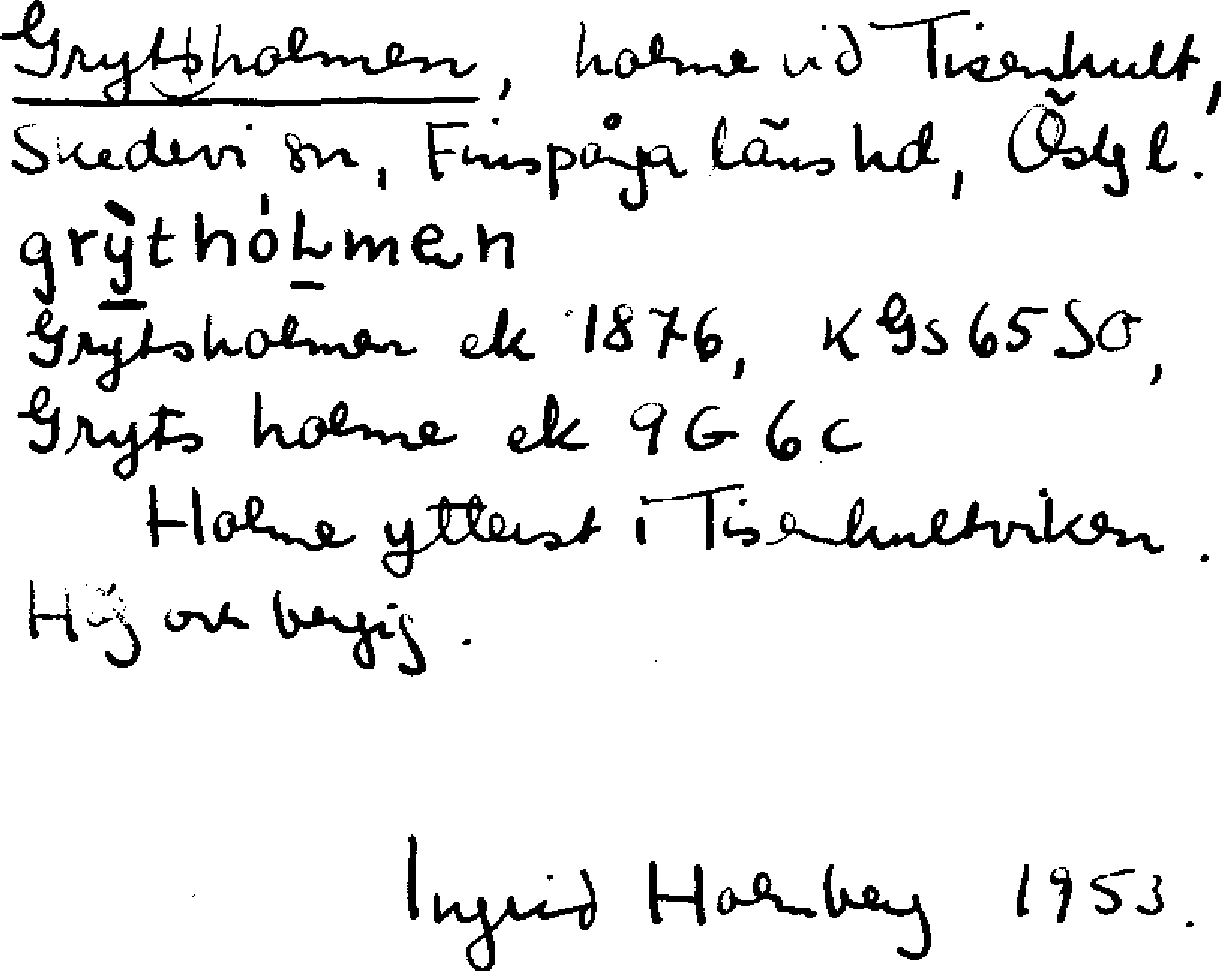 Grytsholmen, holme vid Tisenhult,
Skedevi sn, Finspånga läns hd, Östgl.
grỳthólmen
Grytsholmen ek 1876, KGs 65 SO,
Gryts holme ek 9G 6c
Holme ytterst i Tisenhultviken.
Hög och bergig.
Ingrid Holmberg 1953.